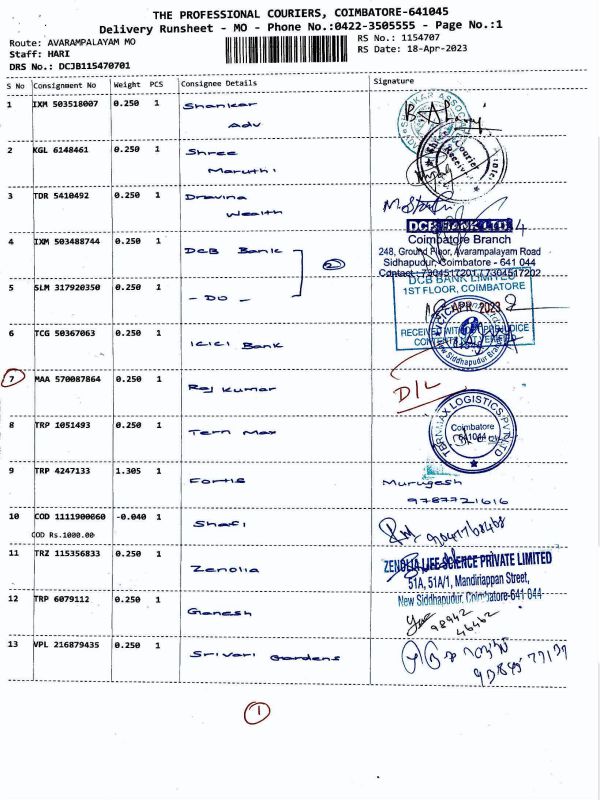 THE PROFESSIONAL COURIERS, COIMBATORE-641045
Delivery Runsheet - MO - Phone No.:0422-3505555 - Page No.:1
Route: AVARAMPALAYAM MO
Staff: HARI
DRS No.: DCJB115470701
RS No.: 1154707
RS Date: 18-Apr-2023
S No Consignment No Weight PCS Consignee Details Signature
1 IXM 503518007 0.250 1 Shankar
Adv
2 KGL 6148461 0.250 1 Shree
Maruthi
Courier
3 TDR 5410492 0.250 1 Dravina
Wealth
4 IXM 503488744 0.250 1 DCB Bank
2
DCB BANK LTD.
Coimbatore Branch
248, Ground Floor, Avarampalayam Road
Sidhapudur, Coimbatore - 641 044
Contact : 7304517201 / 7304517202
5 SLM 317920350 0.250 1 - DO -
DCB BANK LIMITED
1ST FLOOR, COIMBATORE
APR 2023
RECEIVED WITHOUT PREJUDICE
CONTENTS NOT VERIFIED
6 TCG 50367063 0.250 1 ICICI Bank
New Siddhapudur Branch
7 MAA 570087864 0.250 1 Raj Kumar
D/L
8 TRP 1051493 0.250 1 Tern Max
TERNMAX LOGISTICS PVT LTD
Coimbatore
641044
9 TRP 4247133 1.305 1 Fortis Murugesh
9787721616
10 COD 1111900060 -0.040 1 Shafi
COD Rs.1000.00
11 TRZ 115356833 0.250 1 Zenolia
ZENOLIA LIFE SCIENCE PRIVATE LIMITED
51A, 51A/1, Mandiriappan Street,
New Siddhapudur, Coimbatore-641 044
12 TRP 6079112 0.250 1 Ganesh
98942
46462
13 VPL 216879435 0.250 1 Srivari Gardens
1